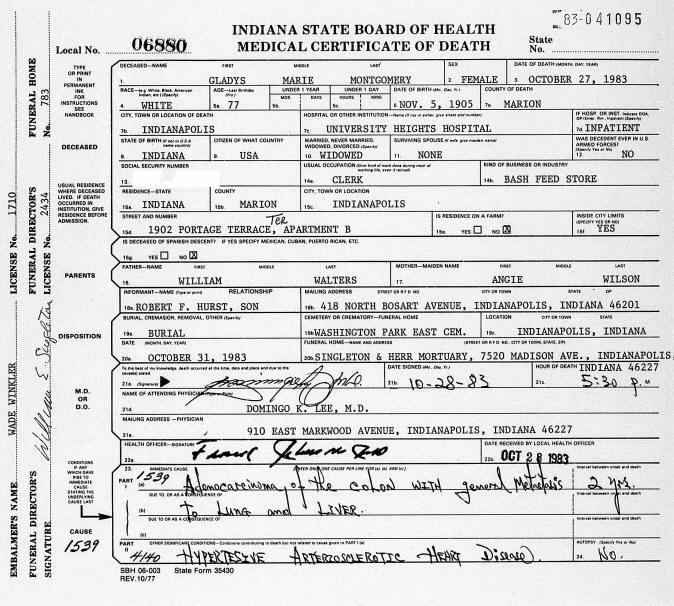 83-041095
INDIANA STATE BOARD OF HEALTH
MEDICAL CERTIFICATE OF DEATH
Local No. 06880
State No.
TYPE OR PRINT IN PERMANENT INK FOR INSTRUCTIONS SEE HANDBOOK
DECEASED—NAME FIRST MIDDLE LAST SEX DATE OF DEATH (MONTH, DAY, YEAR)
1. GLADYS MARIE MONTGOMERY 2. FEMALE 3. OCTOBER 27, 1983
RACE—(e.g. White, Black, American Indian, etc.) (Specify) AGE—Last Birthday (Yrs.) UNDER 1 YEAR UNDER 1 DAY DATE OF BIRTH (Mo., Day, Yr.) COUNTY OF DEATH
MOS. DAYS HOURS MINS
4. WHITE 5a. 77 5b. 5c. 6. NOV. 5, 1905 7a. MARION
CITY, TOWN OR LOCATION OF DEATH HOSPITAL OR OTHER INSTITUTION—Name (If not in either, give street and number) IF HOSP. OR INST. Indicate DOA, OP/Emer. Rm., Inpatient (Specify)
7b. INDIANAPOLIS 7c. UNIVERSITY HEIGHTS HOSPITAL 7d. INPATIENT
DECEASED
STATE OF BIRTH (If not in U.S.A. name country) CITIZEN OF WHAT COUNTRY MARRIED, NEVER MARRIED, WIDOWED, DIVORCED (Specify) SURVIVING SPOUSE (If wife, give maiden name) WAS DECEDENT EVER IN U.S. ARMED FORCES? (Specify Yes or No)
8. INDIANA 9. USA 10. WIDOWED 11. NONE 12. NO
SOCIAL SECURITY NUMBER USUAL OCCUPATION (Give kind of work done during most of working life, even if retired) KIND OF BUSINESS OR INDUSTRY
13. 14a. CLERK 14b. BASH FEED STORE
USUAL RESIDENCE WHERE DECEASED LIVED. IF DEATH OCCURRED IN INSTITUTION, GIVE RESIDENCE BEFORE ADMISSION.
RESIDENCE—STATE COUNTY CITY, TOWN OR LOCATION
15a. INDIANA 15b. MARION 15c. INDIANAPOLIS
STREET AND NUMBER IS RESIDENCE ON A FARM? INSIDE CITY LIMITS (SPECIFY YES OR NO)
Ter
15d. 1902 PORTAGE TERRACE, APARTMENT B 15e. YES NO X 15f. YES
IS DECEASED OF SPANISH DESCENT? IF YES SPECIFY MEXICAN, CUBAN, PUERTO RICAN, ETC.
15g. YES NO X
PARENTS
FATHER—NAME FIRST MIDDLE LAST MOTHER—MAIDEN NAME FIRST MIDDLE LAST
16. WILLIAM WALTERS 17. ANGIE WILSON
INFORMANT—NAME (Type or print) RELATIONSHIP MAILING ADDRESS STREET OR R F D NO CITY OR TOWN STATE ZIP
18a. ROBERT F. HURST, SON 18b. 418 NORTH BOSART AVENUE, INDIANAPOLIS, INDIANA 46201
DISPOSITION
BURIAL, CREMATION, REMOVAL, OTHER (Specify) CEMETERY OR CREMATORY—FUNERAL HOME LOCATION CITY OR TOWN STATE
19a. BURIAL 19b. WASHINGTON PARK EAST CEM. 19c. INDIANAPOLIS, INDIANA
DATE (MONTH, DAY, YEAR) FUNERAL HOME—NAME AND ADDRESS (STREET OR R F D NO., CITY OR TOWN, STATE, ZIP)
20a. OCTOBER 31, 1983 20b. SINGLETON & HERR MORTUARY, 7520 MADISON AVE., INDIANAPOLIS,
INDIANA 46227
M.D. OR D.O.
To the best of my knowledge, death occurred at the time, date and place and due to the cause(s) stated. DATE SIGNED (Mo., Day, Yr.) HOUR OF DEATH
21a. (Signature) M.D. 21b. 10-28-83 21c. 5:30 P. M
NAME OF ATTENDING PHYSICIAN (Type or Print)
21d. DOMINGO K. LEE, M.D.
MAILING ADDRESS—PHYSICIAN
21e. 910 EAST MARKWOOD AVENUE, INDIANAPOLIS, INDIANA 46227
HEALTH OFFICER—SIGNATURE DATE RECEIVED BY LOCAL HEALTH OFFICER
22a. 22b. OCT 28 1983
CONDITIONS IF ANY WHICH GAVE RISE TO IMMEDIATE CAUSE STATING THE UNDERLYING CAUSE LAST
23. IMMEDIATE CAUSE (ENTER ONLY ONE CAUSE PER LINE FOR (a), (b), AND (c).) Interval between onset and death
PART I 1539 (a) Adenocarcinoma of the colon with general Metastasis 2 yrs.
DUE TO, OR AS A CONSEQUENCE OF Interval between onset and death
(b) to Lung and Liver.
DUE TO, OR AS A CONSEQUENCE OF Interval between onset and death
(c)
CAUSE
1539
PART II OTHER SIGNIFICANT CONDITIONS—Conditions contributing to death but not related to cause given in PART I (a) AUTOPSY (Specify Yes or No)
4140 Hypertesive Arteriosclerotic Heart Disease. 24. No.
SBH 06-003 State Form 35430
REV. 10/77
EMBALMER'S NAME WADE WINKLER LICENSE No. 1710
FUNERAL DIRECTOR'S SIGNATURE William E. Singleton
FUNERAL DIRECTOR'S LICENSE No. 2434
FUNERAL HOME No. 783